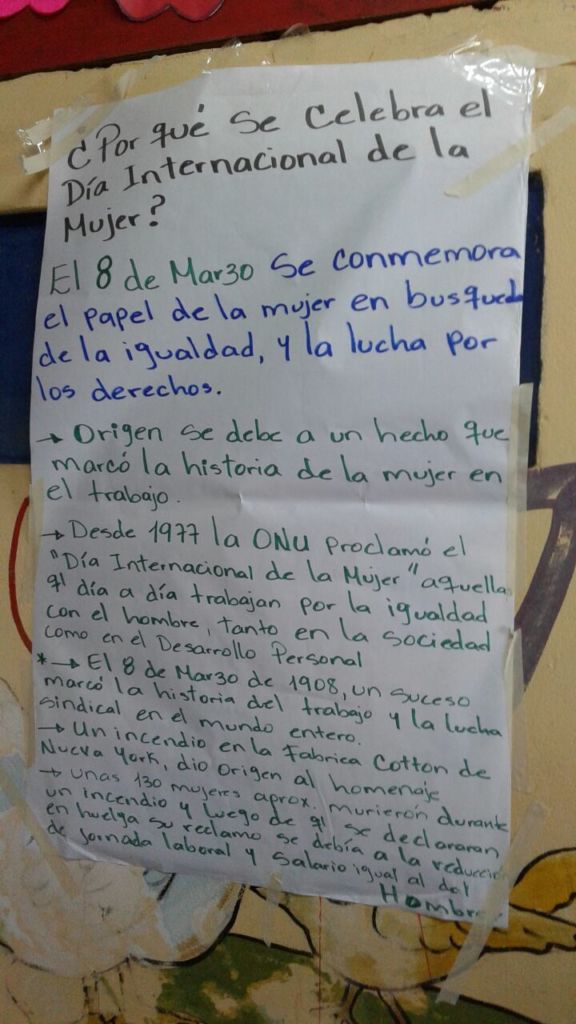 ¿Por qué se celebra el
Día Internacional de la
Mujer?
El 8 de Marzo se conmemora
el papel de la mujer en busqued
de la igualdad, y la lucha por
los derechos.
→ Origen se debe a un hecho que
marcó la historia de la mujer en
el trabajo.
→ Desde 1977 la ONU Proclamó el
"Día Internacional de la Mujer" aquella
q' día a día trabajan por la igualdad
con el hombre, tanto en la sociedad
como en el Desarrollo Personal
* → El 8 de Marzo de 1908, un suceso
marcó la historia del trabajo y la lucha
sindical en el mundo entero.
→ Un incendio en la Fabrica Cotton de
Nueva York, dio origen al homenaje
→ unas 130 mujeres aprox. murieron durante
un incendio y luego de q' se declararan
en huelga su reclamo se debía a la reducció
de jornada laboral y salario igual al del
Hombre